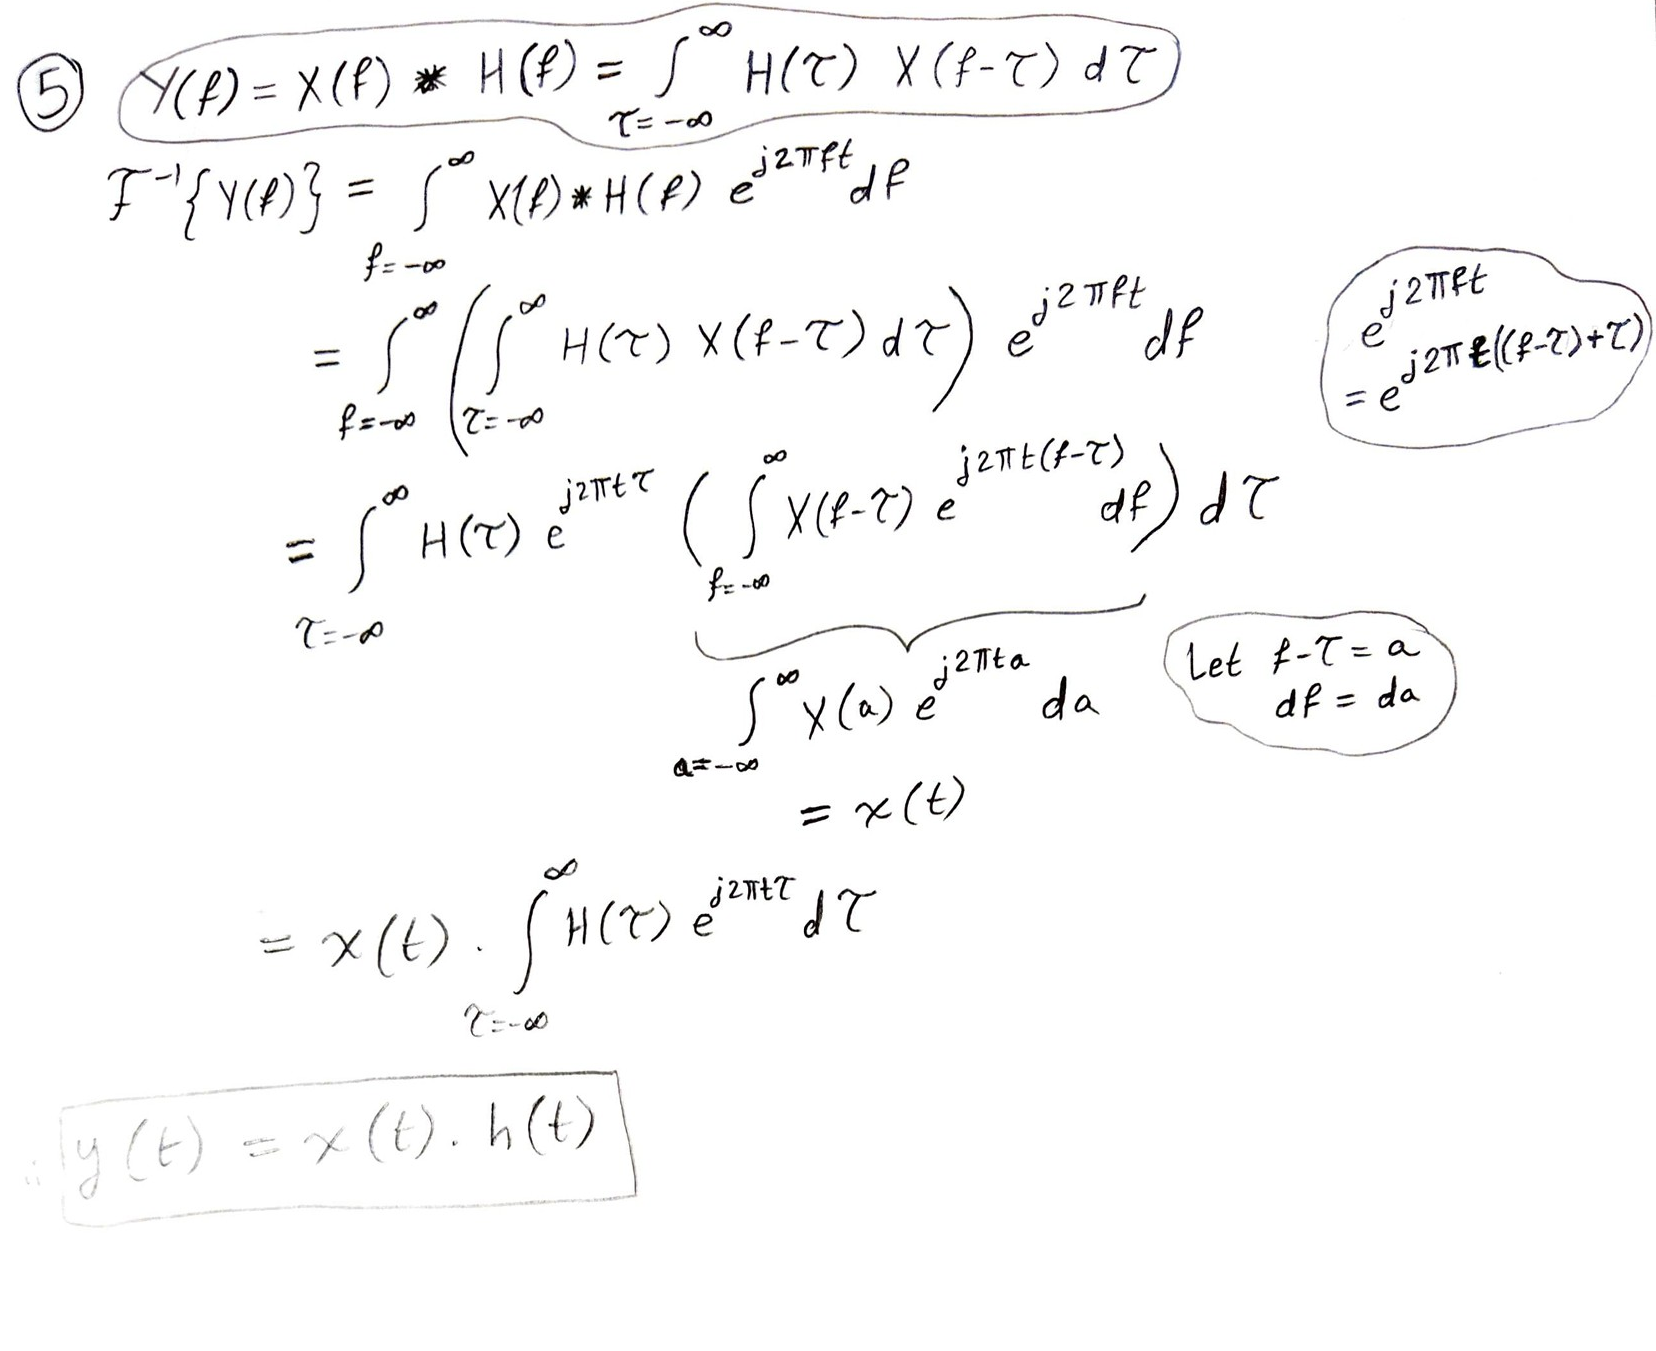 ⑤ Y(f) = X(f) * H(f) = ∫_{τ=-∞}^{∞} H(τ) X(f-τ) dτ
F⁻¹{Y(f)} = ∫_{f=-∞}^{∞} X(f) * H(f) e^{j2πft} df
= ∫_{f=-∞}^{∞} ( ∫_{τ=-∞}^{∞} H(τ) X(f-τ) dτ ) e^{j2πft} df
e^{j2πft}
= e^{j2πt((f-τ)+τ)}
= ∫_{τ=-∞}^{∞} H(τ) e^{j2πtτ} ( ∫_{f=-∞}^{∞} X(f-τ) e^{j2πt(f-τ)} df ) dτ
∫_{a=-∞}^{∞} X(a) e^{j2πta} da
Let f-τ = a
df = da
= x(t)
= x(t) . ∫_{τ=-∞}^{∞} H(τ) e^{j2πtτ} dτ
∴ y(t) = x(t) . h(t)